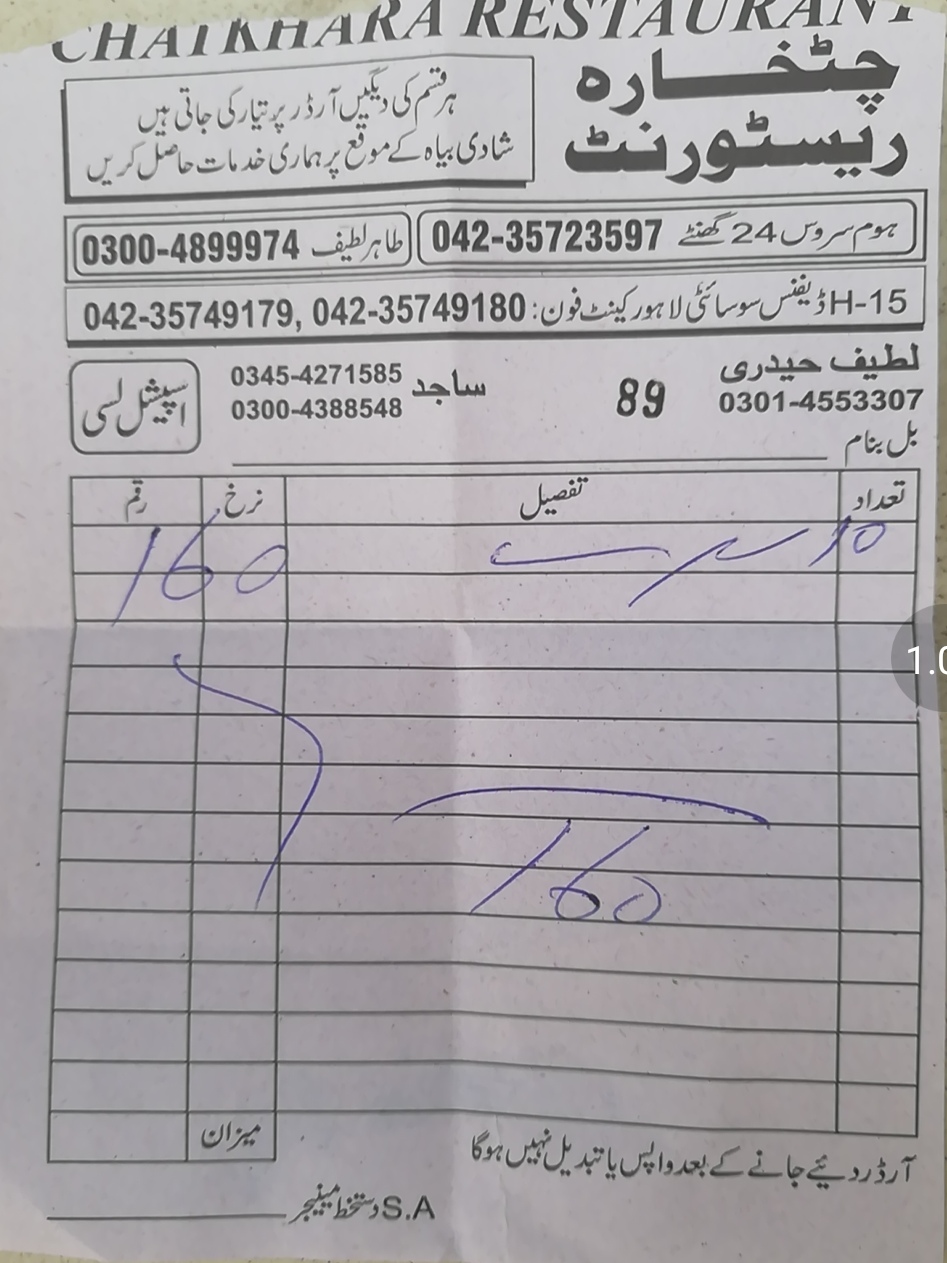 CHATKHARA RESTAURANT
چٹخارہ
ریسٹورنٹ
ہر قسم کی دیگیں آرڈر پر تیار کی جاتی ہیں
شادی بیاہ کے موقع پر ہماری خدمات حاصل کریں
ہوم سروس 24 گھنٹے 042-35723597
طاہر لطیف 0300-4899974
H-15 ڈیفنس سوسائٹی لاہور کینٹ فون: 042-35749180 ,042-35749179
لطیف حیدری
0301-4553307
89
ساجد 0345-4271585
0300-4388548
اسپیشل لسی
بل بنام
تعداد تفصیل نرخ رقم
10 160
160
میزان
آرڈر دئیے جانے کے بعد واپس یا تبدیل نہیں ہوگا
S.A دستخط مینیجر
1.0